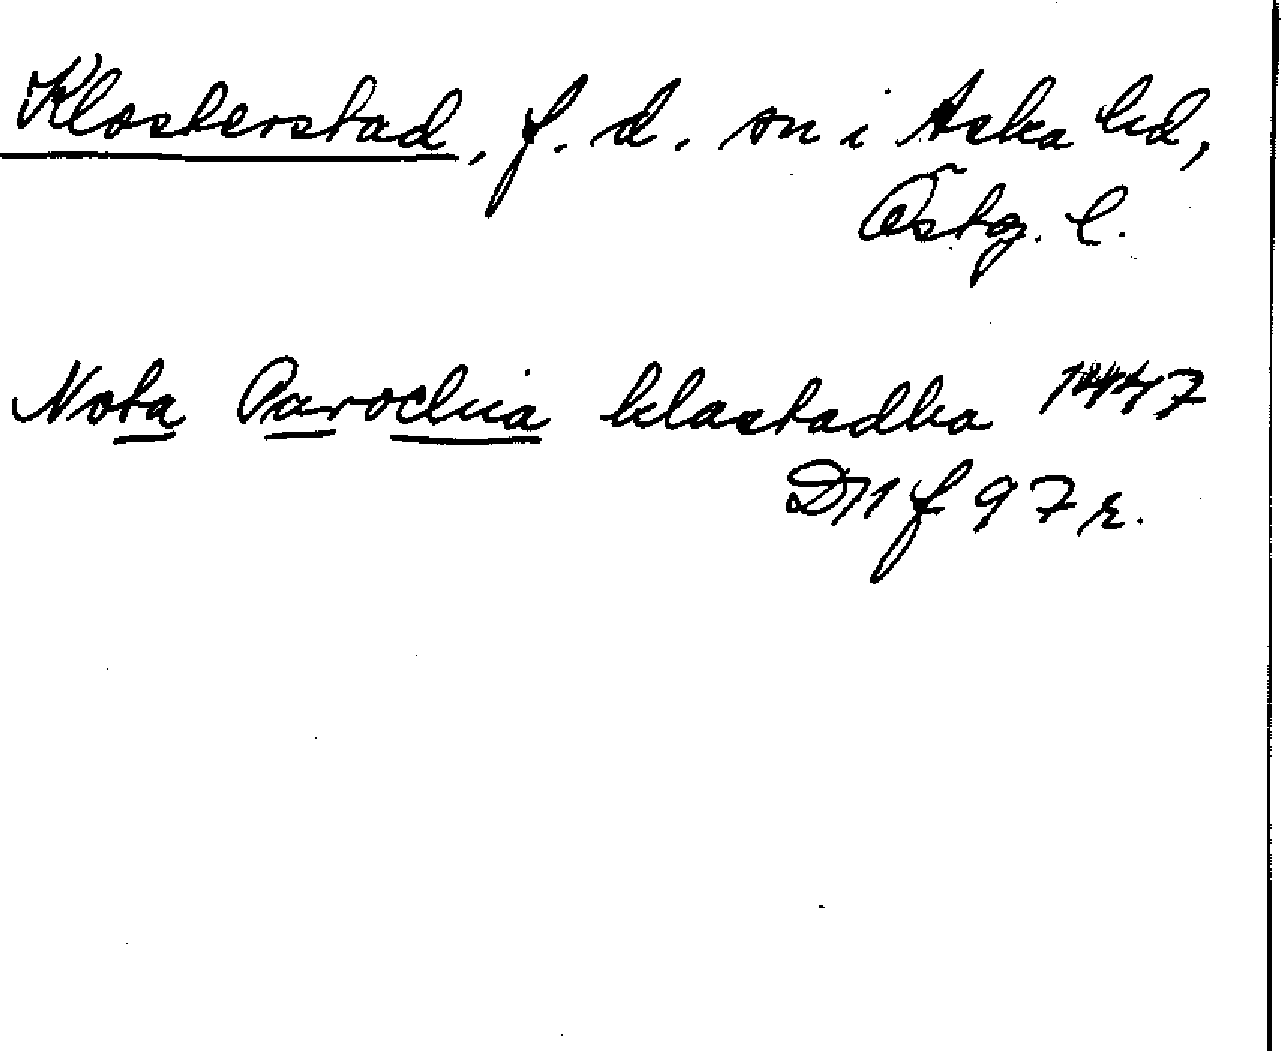 Klosterstad, f. d. sn i Aska hd,
Östg. l.
Nota Parochia klastadha 1447
D11 f 97 r.